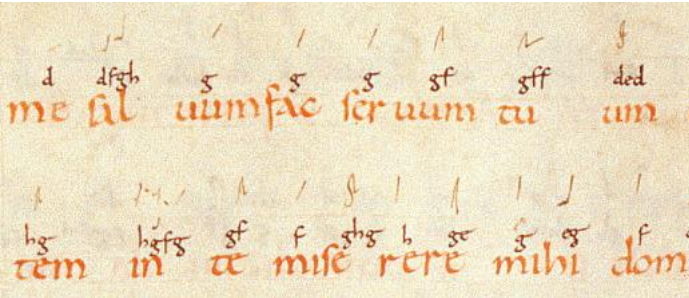 d dfgh g g g gf gff ded
me sal uum fac ser uum tu um
hg hgfg gf f ghg h ge g eg f
tem in te mise rere mihi dom